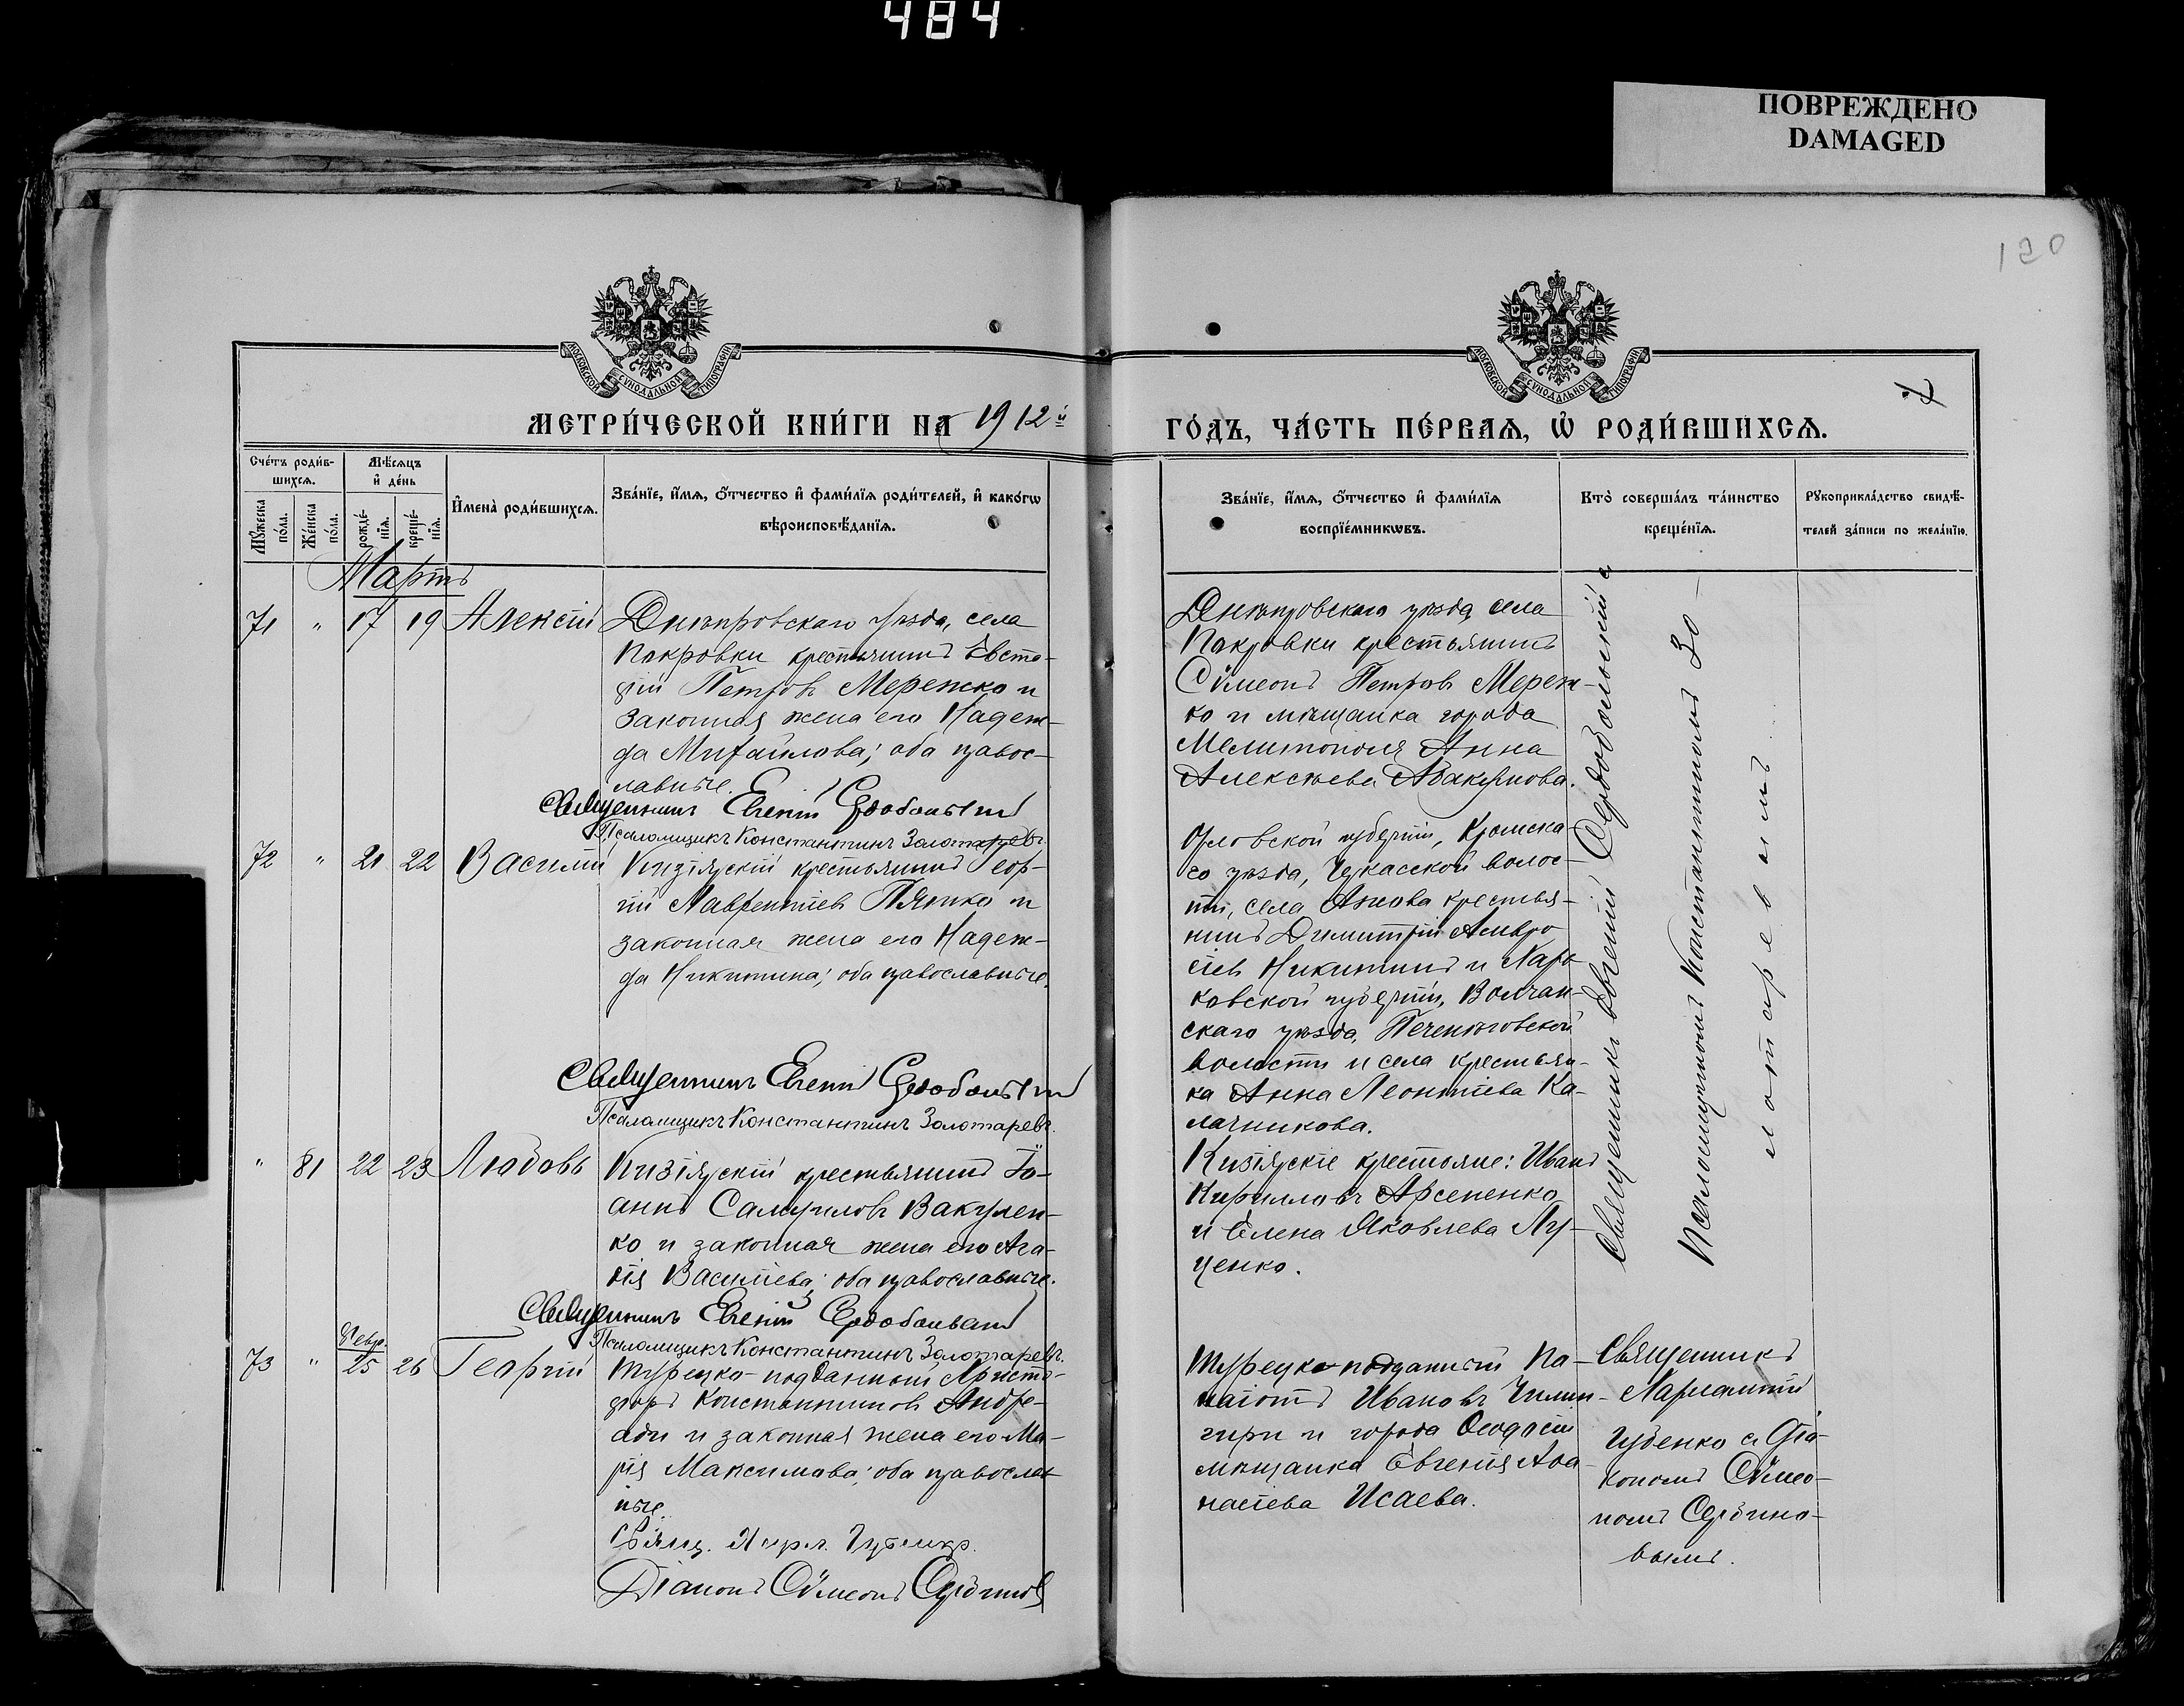 484
ПОВРЕЖДЕНО
DAMAGED
120
МОСКОВСКОЙ СѴНОДАЛЬНОЙ ТИПОГРАФІИ
МОСКОВСКОЙ СѴНОДАЛЬНОЙ ТИПОГРАФІИ
МЕТРИ́ЧЕСКОЙ КНИ́ГИ НА 1912й
ГО́ДЪ, ЧА́СТЬ ПЕ́РВАѦ, Ѡ҆ РОДИ́ВШИХСѦ.
Сче́тъ роди́в-
шихсѧ.
Мꙋ́жеска по́ла.
Же́нска по́ла.
Мѣ́сѧцъ
и҆ де́нь
рожде́-нїѧ.
креще́-нїѧ.
И҆мена̀ роди́вшихсѧ.
Зва́нїе, и҆́мѧ, ѻ҆́тчество и҆ фами́лїѧ роди́телей, и҆ како́гѡ
вѣроисповѣ́данїѧ.
Зва́нїе, и҆́мѧ, ѻ҆́тчество и҆ фами́лїѧ
воспрїе́мникѡвъ.
Кто̀ соверша́лъ та́инство
креще́нїѧ.
Рꙋкоприкла́дство свидѣ́-
телей за́писи по жела́нїю.
Мартъ
71 " 17 19 Алексій
Днѣпровскаго уѣзда, села
Покровки крестьянинъ Евста-
фій Петровъ Мережко и
законная жена его Надеж-
да Михайлова; оба правос-
лавные.
Священникъ Евгеній Сердобольскій
Псаломщикъ Константинъ Золотаревъ.
Днѣпровскаго уѣзда села
Покровки крестьянинъ
Сѵмеонъ Петровъ Мереж-
ко и мѣщанка города
Мелитополя Анна
Алексѣева Абакумова.
72 " 21 22 Василій
Кизіярскій крестьянинъ Геор-
гій Лаврентіевъ Пятко и
законная жена его Надеж-
да Никитина; оба православные.
Священникъ Евгеній Сердобольскій
Псаломщикъ Константинъ Золотаревъ.
Орловской губерніи, Кромска-
го уѣзда, волос-
ти, села крестья-
нинъ Димитрій Амвро
сіевъ Никитинъ и Харь
ковской губерніи, Волчан-
скаго уѣзда, Печенѣговской
волости и села крестьян-
ка Анна Леонтіева Ка-
лачникова.
" 81 22 23 Любовь
Кизіярскій крестьянинъ Іо-
аннъ Самуиловъ Вакулен-
ко и законная жена его Ага-
ѳія Василіева; оба православные.
Священникъ Евгеній Сердобольскій
Псаломщикъ Константинъ Золотаревъ.
Кизіярскіе крестьяне: Иванъ
Кирилловъ Арсененко
и Елена Яковлева Лу-
ценко.
Священникъ Евгеній Сердобольскій съ
Псаломщикомъ Константиномъ Зо-
лотаревымъ.
Февр.
73 " 25 26 Георгій
Турецко-подданный Аристи-
Константиновъ Андре-
ади и законная жена его Ма-
рія Максимова; оба православ-
ные.
Свящ. Харл. Губенко.
Діаконъ Сѵмеонъ Сербиновъ
Турецко-подданный Па-
наіотъ Ивановъ Чилин-
гири и города Ѳеодосіи
мѣщанка Евгенія Аѳа-
насіева Исаева.
Священникъ
Харлампій
Губенко съ діа-
кономъ Сѵмео-
номъ Сербино-
вымъ.